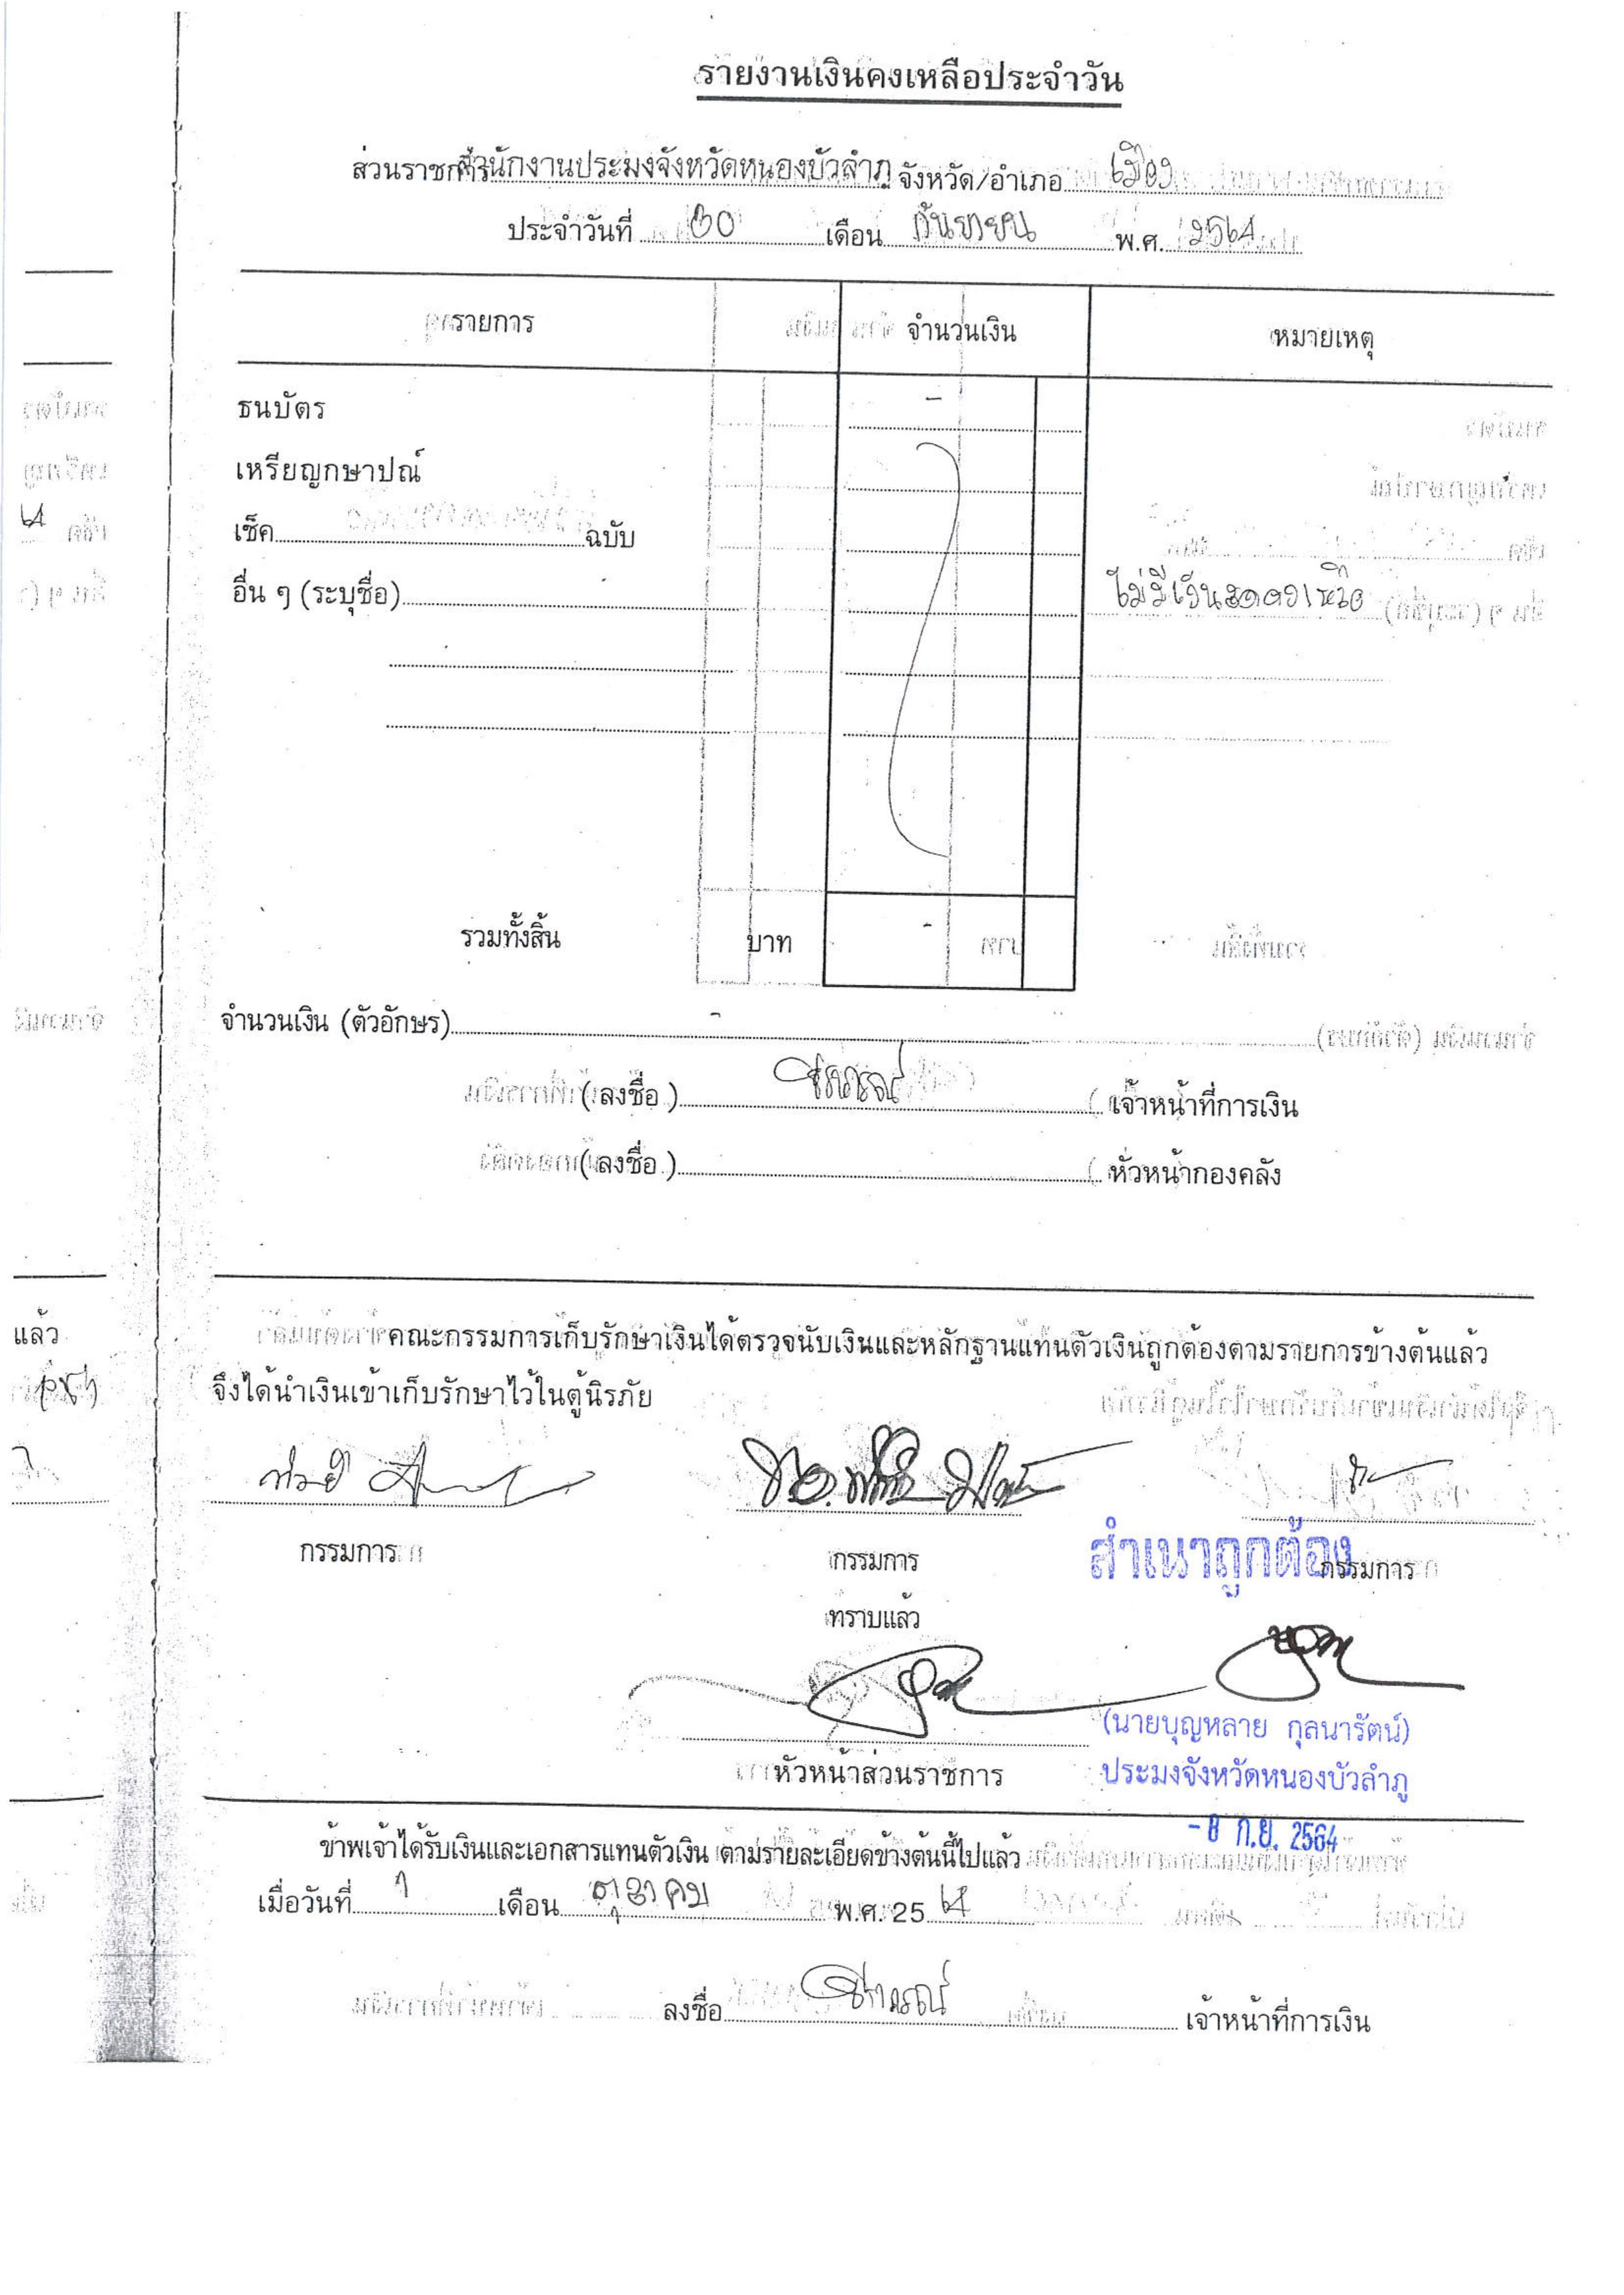 รายงานเงินคงเหลือประจำวัน
ส่วนราชการ สำนักงานประมงจังหวัดหนองบัวลำภู จังหวัด/อำเภอ เมือง
ประจำวันที่ 30 เดือน กันยายน พ.ศ. 2564
รายการ จำนวนเงิน หมายเหตุ
ธนบัตร -
เหรียญกษาปณ์
เช็ค ฉบับ
อื่น ๆ (ระบุชื่อ) ไม่มีเงินสดคงเหลือ
รวมทั้งสิ้น บาท -
จำนวนเงิน (ตัวอักษร) -
(ลงชื่อ) เจ้าหน้าที่การเงิน
(ลงชื่อ) หัวหน้ากองคลัง
แล้ว คณะกรรมการเก็บรักษาเงินได้ตรวจนับเงินและหลักฐานแทนตัวเงินถูกต้องตามรายการข้างต้นแล้ว
จึงได้นำเงินเข้าเก็บรักษาไว้ในตู้นิรภัย
กรรมการ กรรมการ สำเนาถูกต้อง กรรมการ
ทราบแล้ว
(นายบุญหลาย กุลนารัตน์)
หัวหน้าส่วนราชการ ประมงจังหวัดหนองบัวลำภู
- 8 ก.ย. 2564
ข้าพเจ้าได้รับเงินและเอกสารแทนตัวเงิน ตามรายละเอียดข้างต้นนี้ไปแล้ว
เมื่อวันที่ 1 เดือน ตุลาคม พ.ศ. 25 64
ลงชื่อ เจ้าหน้าที่การเงิน